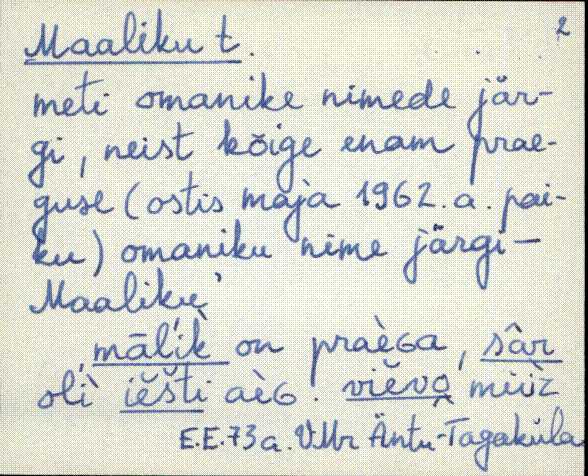 2
Maaliku t.
meti omanike nimede jär-
gi, neist kõige enam prae-
guse (ostis maja 1962. a. pai-
ku) omaniku nime järgi –
Maaliku,
māĺìk on praèɢa, sâr
olì iẽšti aèɢ. viẽvo müìz
E.E.73a. VMr Äntu-Tagaküla